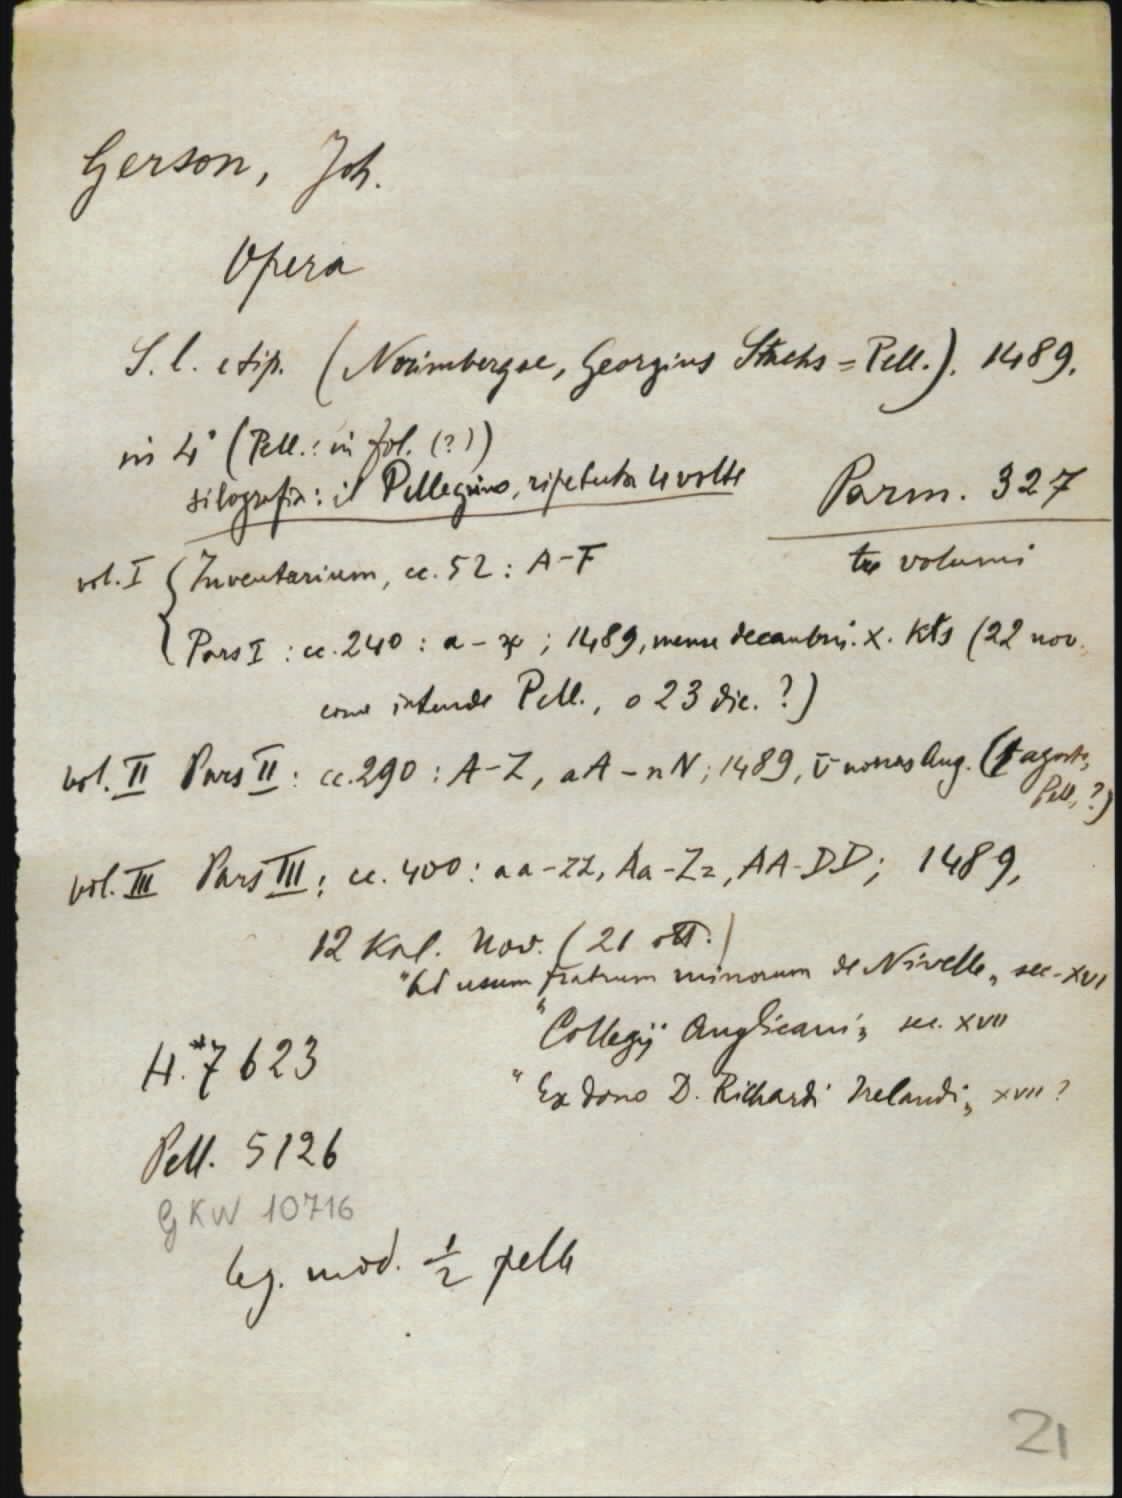 Gerson, Joh.
Opera
S. l. e tip. (Norimbergae, Georgius Stuchs = Pell.). 1489.
in 4° (Pell.: in fol. (?))
silografia: il Pellegrino, ripetuta 4 volte
Parm. 327
tre volumi
vol. I { Inventarium, cc. 52: A-F
Pars I: cc. 240: a - ; 1489, mense decembri. X. kls (22 nov.
come intende Pell., o 23 dic. ?)
vol. II Pars II: cc. 290: A-Z, aA-nN; 1489, V nonas Aug. (1 agosto, Pell., ?)
vol. III Pars III: cc. 400: aa-zz, Aa-Zz, AA-DD; 1489,
12 Kal. Nov. (21 ott.)
"Ad usum fratrum minorum de Nivelle", sec. XVI
"Collegij Anglicani", sec. XVII
"Ex dono D. Richardi Irelandi", XVII?
H.*7623
Pell. 5126
GKW 10716
leg. mod. 1/2 pelle
21